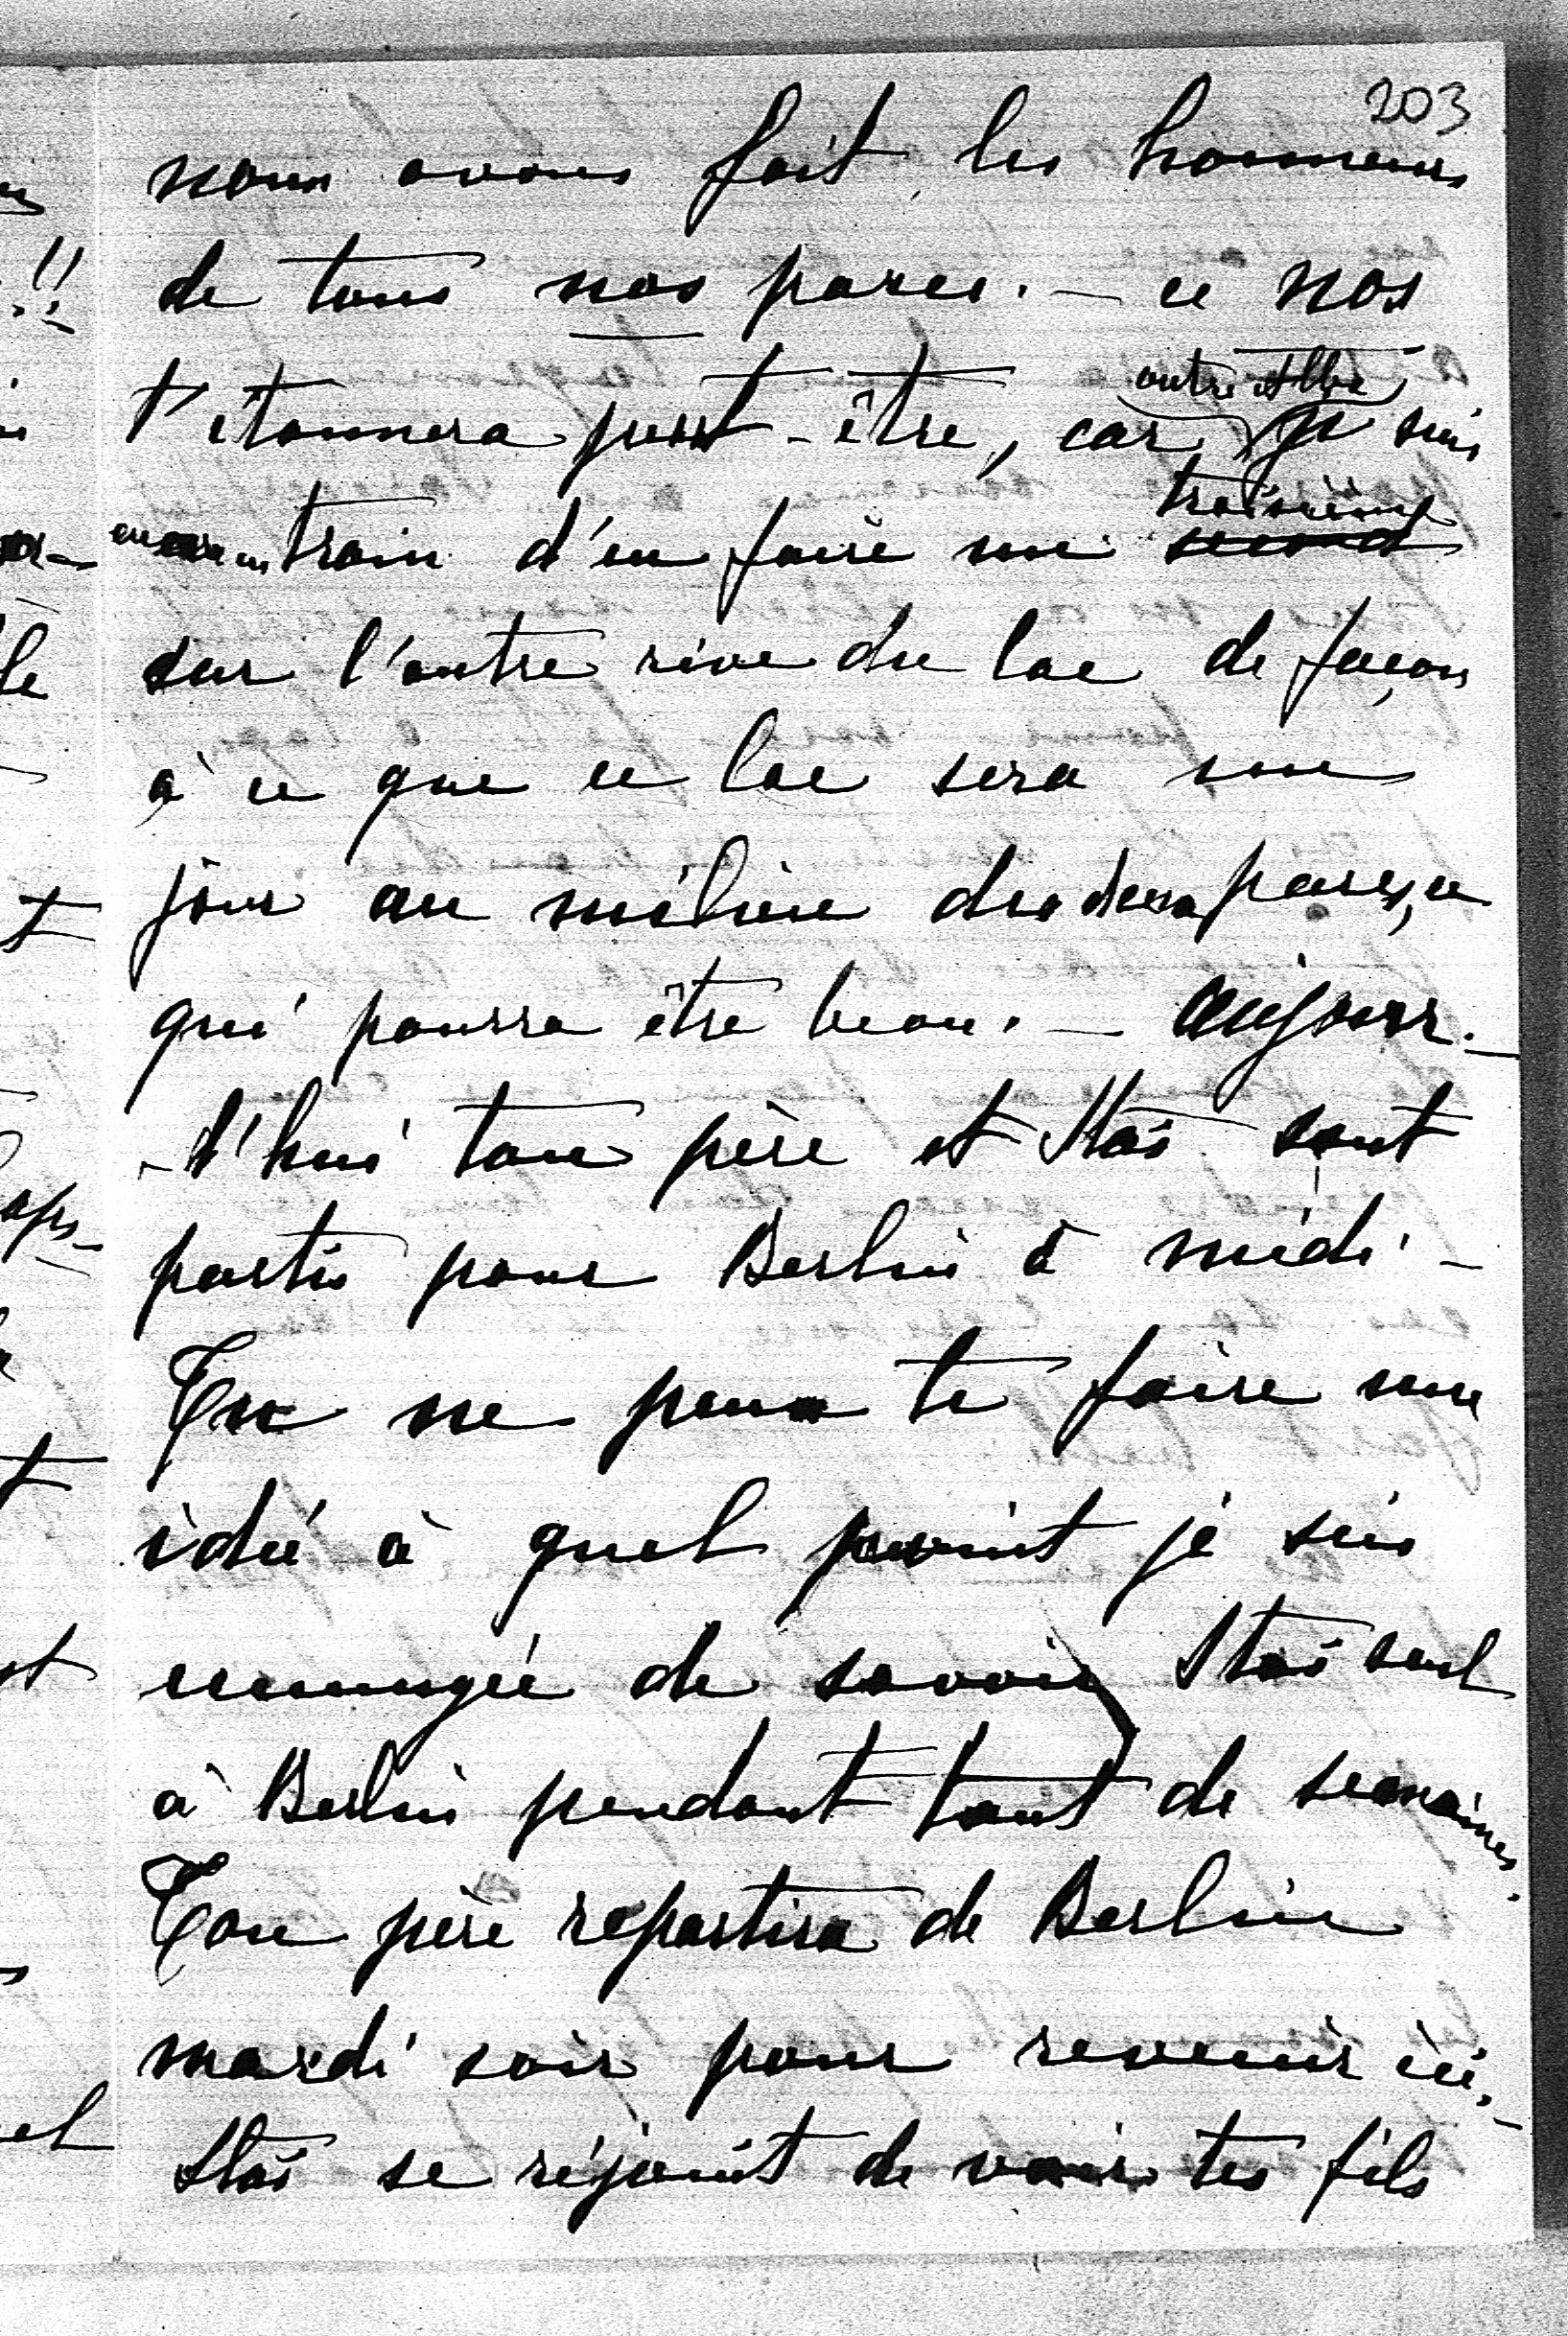 203
nous avons fait les honneurs
de tous nos parcs. — ce nos
t'étonnera peut-être, car, outre Albe, je suis
encore en train d'en faire un second troisième
sur l'autre rive du lac de façon
à ce que ce lac sera un
jour au milieu des deux parcs, ce
qui pourra être beau. — Aujour-
-d'hui ton père et Staś sont
partis pour Berlin à midi -
Tu ne peux te faire une
idée à quel point je suis
ennuyée de savoir Staś seul
à Berlin pendant tant de semaines.
Ton père repartira de Berlin
mardi soir pour revenir ici. -
Staś se réjouit de voir tes fils